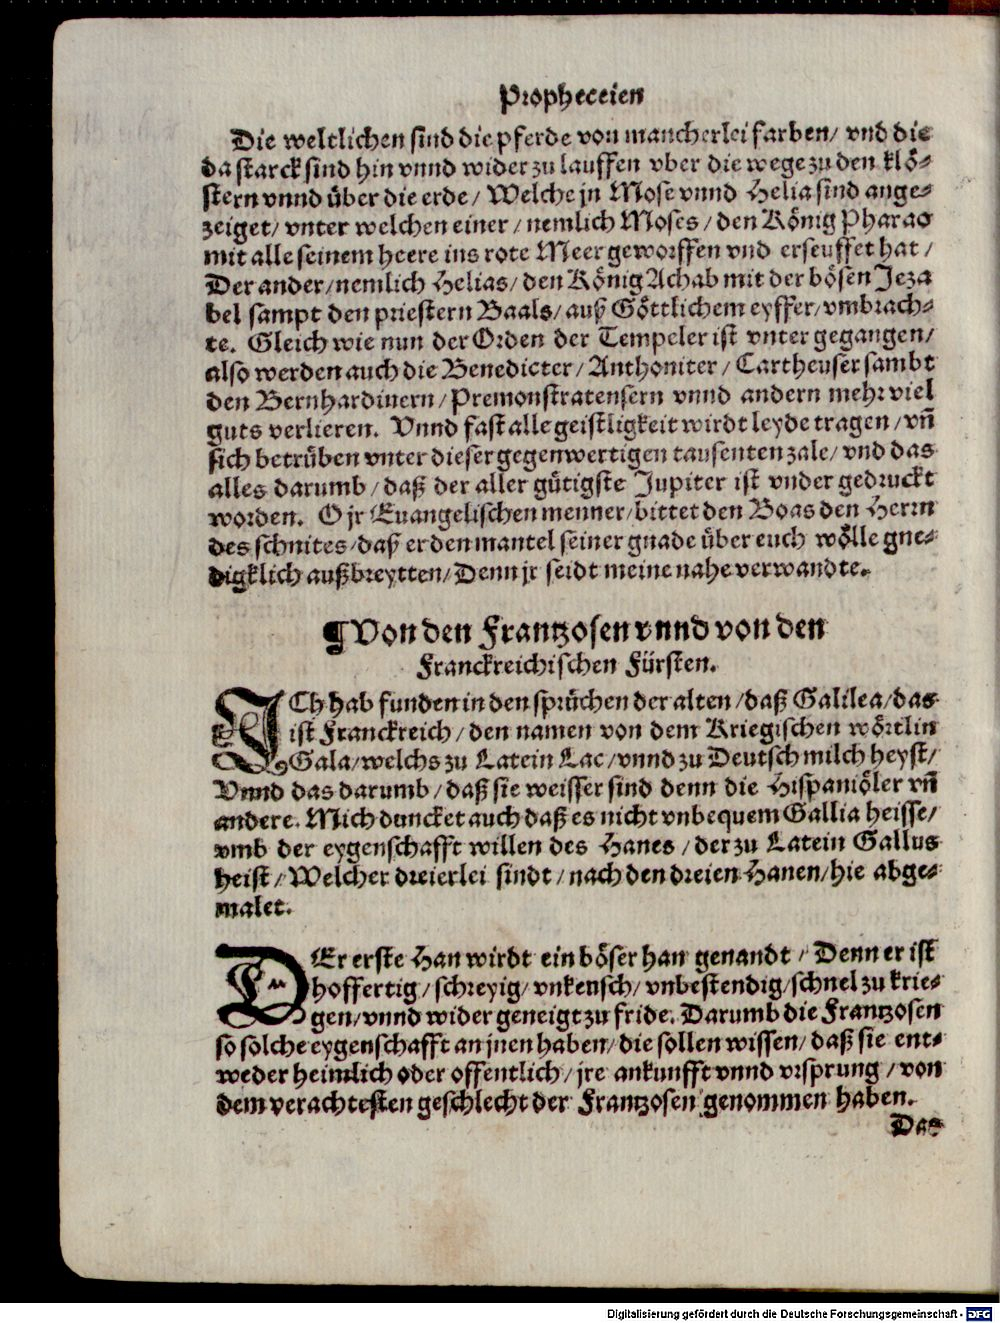 Propheceien
Die weltlichen sind die pferde von mancherlei farben/ vnd die
da starck sind hin vnnd wider zu lauffen vber die wege zu den klö⸗
stern vnnd über die erde/ Welche jn Mose vnnd Helia sind ange⸗
zeiget/ vnter welchen einer/ nemlich Moses/ den König Pharao
mit alle seinem heere ins rote Meer geworffen vnd erseuffet hat/
Der ander/ nemlich Helias/ den König Achab mit der bösen Jeza
bel sampt den priestern Baals/ auß Göttlichem eyffer/ vmbrach⸗
te. Gleich wie nun der Orden der Tempeler ist vnter gegangen/
also werden auch die Benedicter/ Anthoniter/ Cartheuser sambt
den Bernhardinern/ Premonstratensern vnnd andern mehr viel
guts verlieren. Vnnd fast alle geistligkeit wirdt leyde tragen/ vñ
sich betrüben vnter dieser gegenwertigen tausenten zale/ vnd das
alles darumb/ daß der aller gütigste Jupiter ist vnder gedruckt
worden. O jr Euangelischen menner/ bittet den Boas den Herrn
des schnites/ daß er den mantel seiner gnade über euch wölle gne⸗
digklich außbreytten/ Denn jr seidt meine nahe verwandte.
¶ Von den Frantzosen vnnd von den
Franckreichischen Fürsten.
ICh hab funden in den sprüchen der alten/ daß Galilea/ das
ist Franckreich/ den namen von dem Kriegischen wörtlin
Gala/ welchs zu Latein Lac/ vnnd zu Deutsch milch heyst/
Vnnd das darumb/ daß sie weisser sind denn die Hispaniöler vñ
andere. Mich duncket auch daß es nicht vnbequem Gallia heisse/
vmb der eygenschafft willen des Hanes/ der zu Latein Gallus
heist/ Welcher dreierlei sindt/ nach den dreien Hanen/ hie abge⸗
malet.
DEr erste Han wirdt ein böser han genandt/ Denn er ist
hoffertig/ schreyig/ vnkeusch/ vnbestendig/ schnel zu krie⸗
gen/ vnnd wider geneigt zu fride. Darumb die Frantzosen
so solche eygenschafft an jnen haben/ die sollen wissen/ daß sie ent⸗
weder heimlich oder offentlich/ jre ankunfft vnnd vrsprung/ von
dem verachtesten geschlecht der Frantzosen genommen haben.
Das
Digitalisierung gefördert durch die Deutsche Forschungsgemeinschaft - DFG